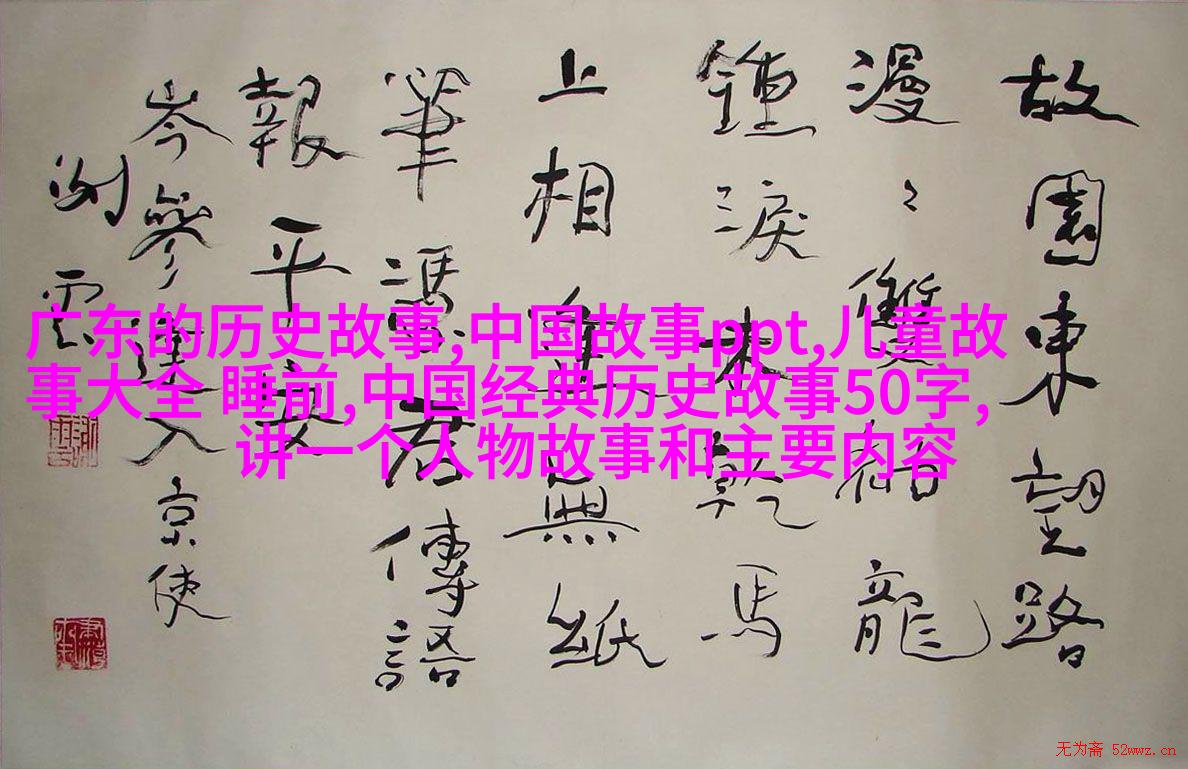 故園東望路
漫〻雙袖龍
鍾淚未乾馬
上相逢無紙
筆馮君傳語
報平安
岑參逢入京使
广东的历史故事,中国故事ppt,儿童故
事大全 睡前,中国经典历史故事50字,
讲一个人物故事和主要内容
无为斋 52wwz.cn